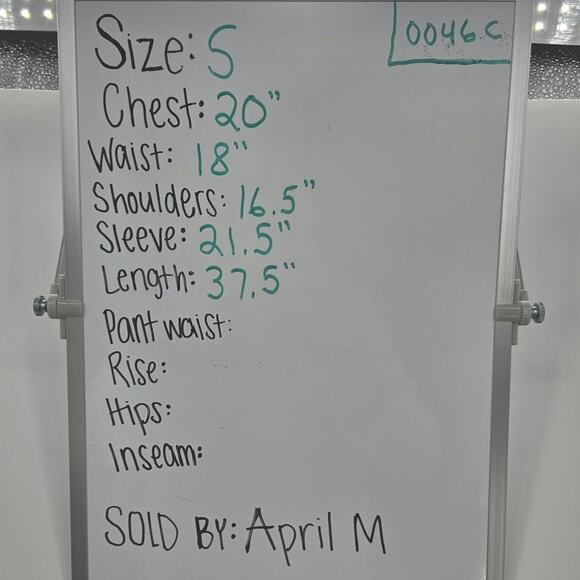 0046.C
Size: S
Chest: 20"
Waist: 18"
Shoulders: 16.5"
Sleeve: 21.5"
Length: 37.5"
Pant waist:
Rise:
Hips:
Inseam:
SOLD BY: April M